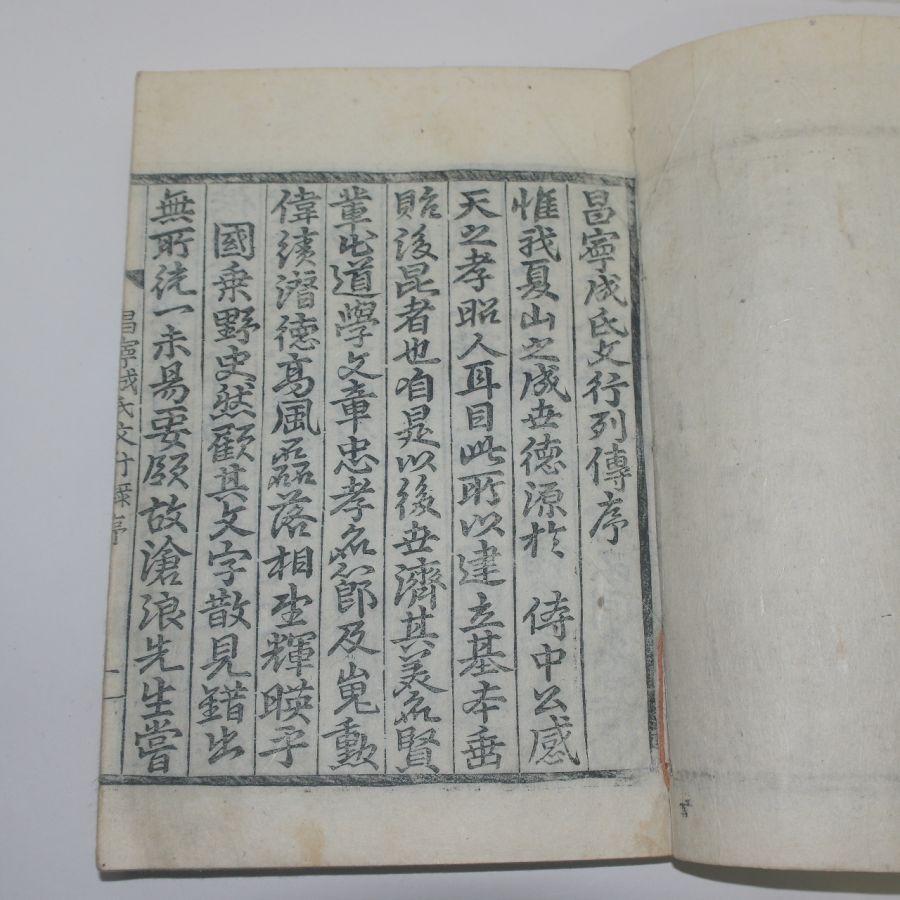 昌寧成氏文行列傳序
惟我夏山之成世德源於 侍中公感
天之孝昭人耳目此所以建立基本垂
貽後昆者也自是以後世濟其美名賢
輩出道學文章忠孝名節及嵬勳
偉績潛德高風磊落相望輝暎乎
國乘野史然顧其文字散見錯出
無所統一未易要領故滄浪先生嘗
昌寧成氏文行 序 一